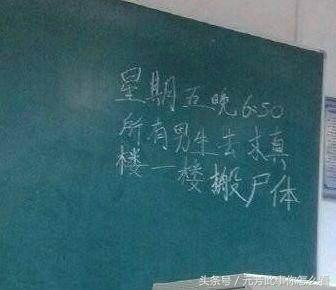 星期五晚6:50
所有男生去求真
楼一楼搬尸体
头条号／元芳此事你怎么看